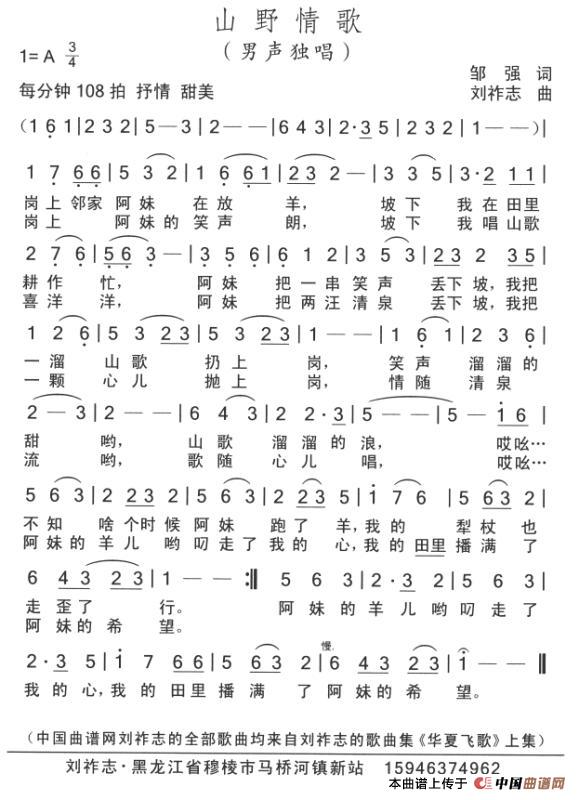 山野情歌
（男声独唱）
1=A 3/4
邹 强 词
每分钟 108 拍 抒情 甜美
刘祚志 曲
（1 6 1 | 2 3 2 | 5 — 3 | 2 — — | 6 4 3 | 2 · 3 5 | 2 3 2 | 1 — — )|
1 7 6 6 | 5 3 2 | 1 6 6 | 2 3 — | 3 3 5 | 3 · 2 1 1 |
岗上邻家阿妹在放羊，坡下我在田里
岗上阿妹的笑声朗，坡下我唱山歌
2 7 6 | 5 6 5 — | 3 5 6 | 6 1 2 | 3 5 3 | 2 3 2 3 5 |
耕作忙，阿妹把一串笑声丢下坡，我把
喜洋洋，阿妹把两汪清泉丢下坡，我把
1 2 6 | 5 3 2 3 | 5 3 2 3 | 1 — — | 1 6 1 | 5 5 3 |
一溜山歌扔上岗，笑声溜溜的
一颗心儿抛上岗，情随清泉
2 — 3 | 2 — — | 6 4 3 | 2 2 · 3 | 5 — — | 5 — 1 6 |
甜哟，山歌溜溜的浪，哎吆…
流哟，歌随心儿唱，哎吆…
5 6 3 | 2 2 3 | 5 6 3 | 2 2 · 3 | 5 1 7 6 | 5 6 3 |
不知啥个时候阿妹跑了羊，我的犁杖也
阿妹的羊儿哟叨走了我的心，我的田里播满了
6 4 3 2 3 | 1 — — :‖ 5 6 3 | 2 2 · 3 | 5 6 3 |
走歪了行。阿妹的羊儿哟叨走了
阿妹的希望。
2 · 3 5 | 1 7 6 6 | 5 6 3 2 | 慢. 6 4 3 2 3 | 1 — ‖
我的心，我的田里播满了阿妹的希望。
（中国曲谱网刘祚志的全部歌曲均来自刘祚志的歌曲集《华夏飞歌》上集）
刘祚志·黑龙江省穆棱市马桥河镇新站 15946374962
本曲谱上传于 中国曲谱网